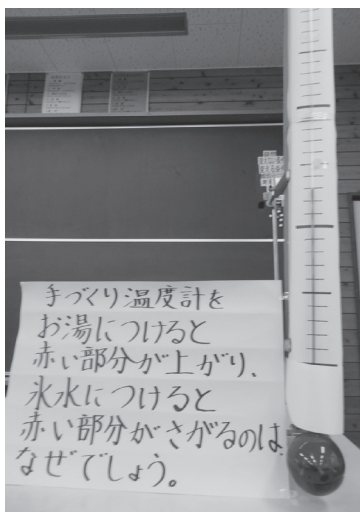 手づくり温度計を
お湯につけると
赤い部分が上がり、
氷水につけると
赤い部分がさがるのは、
なぜでしょう。